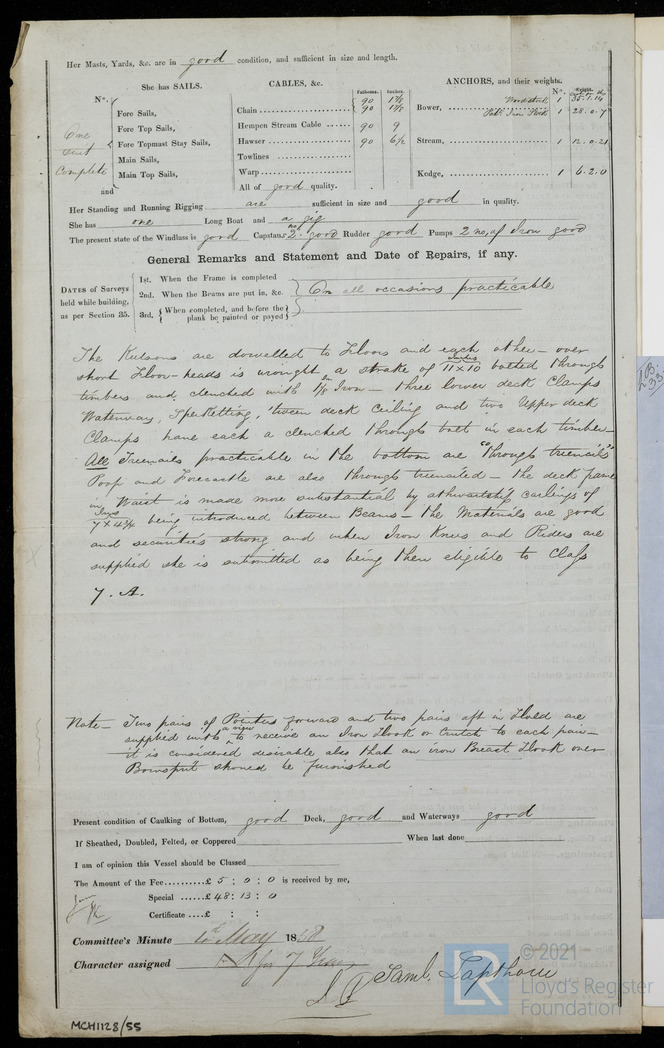 Her Masts, Yards, &c. are in good condition, and sufficient in size and length.
She has SAILS.
CABLES, &c.
ANCHORS, and their weights.
Fathoms. Inches.
N°. Weight.
N°.
One suit Complete
and
Fore Sails,
Fore Top Sails,
Fore Topmast Stay Sails,
Main Sails,
Main Top Sails,
Chain 90 1 7/8
90 1 7/8
Hempen Stream Cable 90 9
Hawser 90 6 1/2
Towlines
Warp
All of good quality.
Bower, Woodstock 1 35.1.14
Pat. Iron Stock 1 28.0.7
Stream, 1 12.0.21
Kedge, 1 6.2.0
Her Standing and Running Rigging are sufficient in size and good in quality.
She has one Long Boat and a gig
The present state of the Windlass is good Capstans 2 no. good Rudder good Pumps 2 no. of Iron good
General Remarks and Statement and Date of Repairs, if any.
DATES of Surveys held while building, as per Section 35.
1st. When the Frame is completed
2nd. When the Beams are put in, &c.
3rd. When completed, and before the plank be painted or payed
On all occasions practicable
The Kelsons are dowelled to Floors and each other - over
short Floor-heads is wrought a strake of 11 x 10 inches bolted through
timbers and clenched with 1 1/8 in Iron - three lower deck Clamps
Waterway, Spirketting, 'tween deck ceiling and two Upper deck
Clamps have each a clenched through bolt in each timber -
All Treenails practicable in the bottom are "through treenails"
Poop and Forecastle are also through treenailed - the deck frame
in Waist is made more substantial by athwartship carlings of
7 x 4 3/4 being introduced between Beams - the Materials are good
and securities strong and when Iron Knees and Riders are
supplied she is submitted as being then eligible to Class
7. A.
Note - Two pairs of Pointers forward and two pairs aft in Hold are
supplied with a view to receive an Iron Hook or Crutch to each pair -
it is considered desirable also that an iron Breast Hook over
Bowsprit should be furnished
Present condition of Caulking of Bottom, good Deck, good and Waterways good
If Sheathed, Doubled, Felted, or Coppered When last done
I am of opinion this Vessel should be Classed
The Amount of the Fee £ 5 : 0 : 0 is received by me,
Special £ 48 : 13 : 0
Certificate £ : :
Committee's Minute 10th May 1868
Character assigned A 1 for 7 Years
Saml. Lapthorn
MCH1128/55
LR
© 2021
Lloyd's Register
Foundation